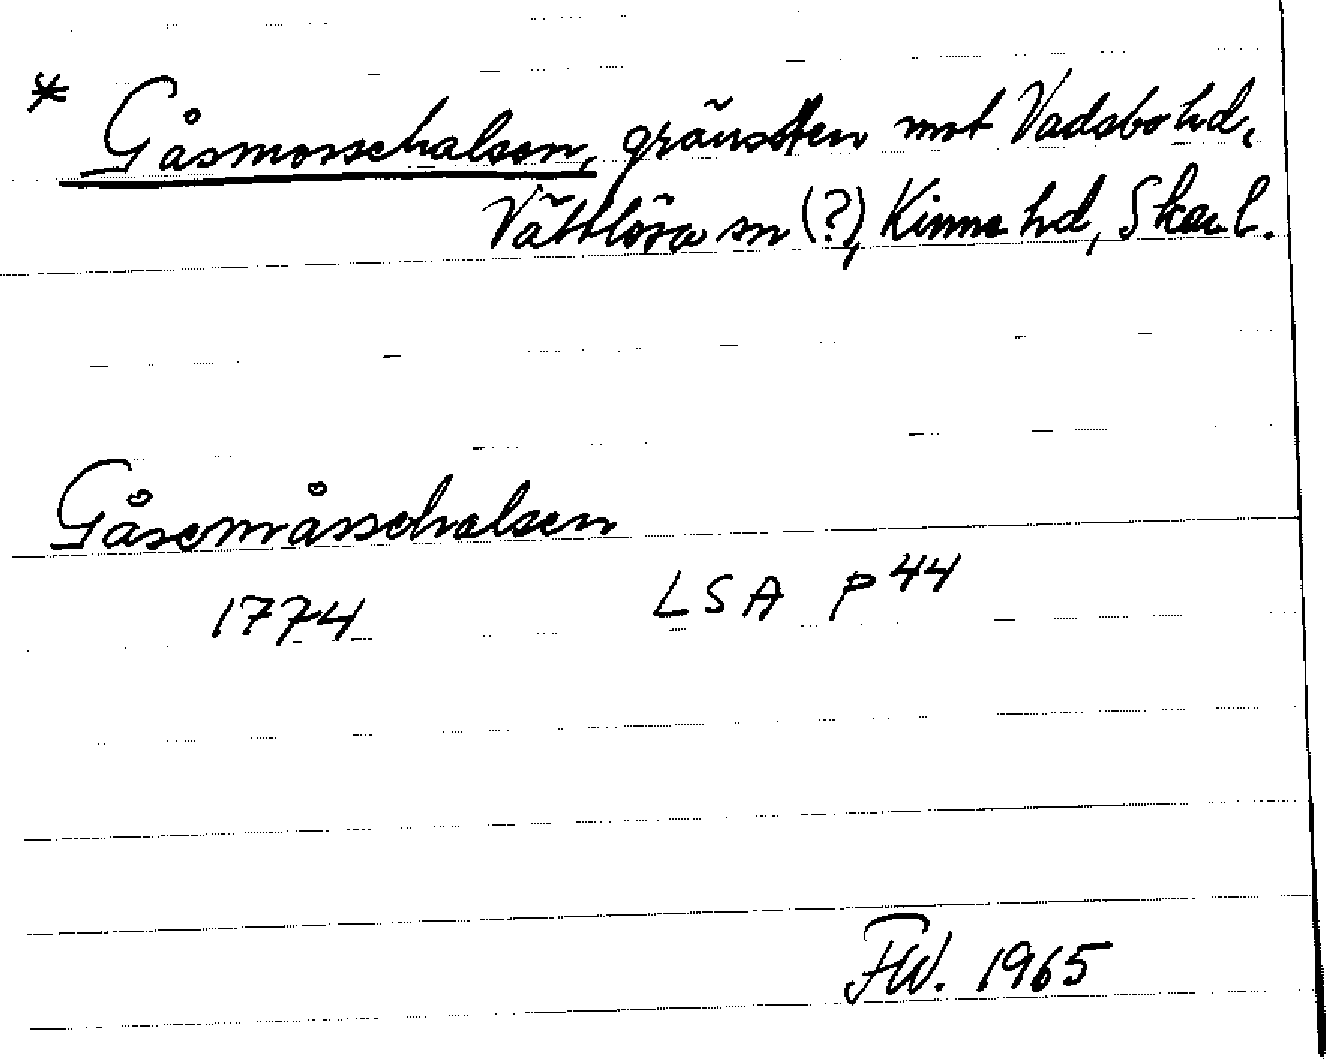 * Gåsmossehalsen, gränssten mot Vadsbo hd,
Vättlösa sn (?), Kinne hd, Skar. l.
Gåsemåssehalsen
1774 LSA P 44
FW. 1965